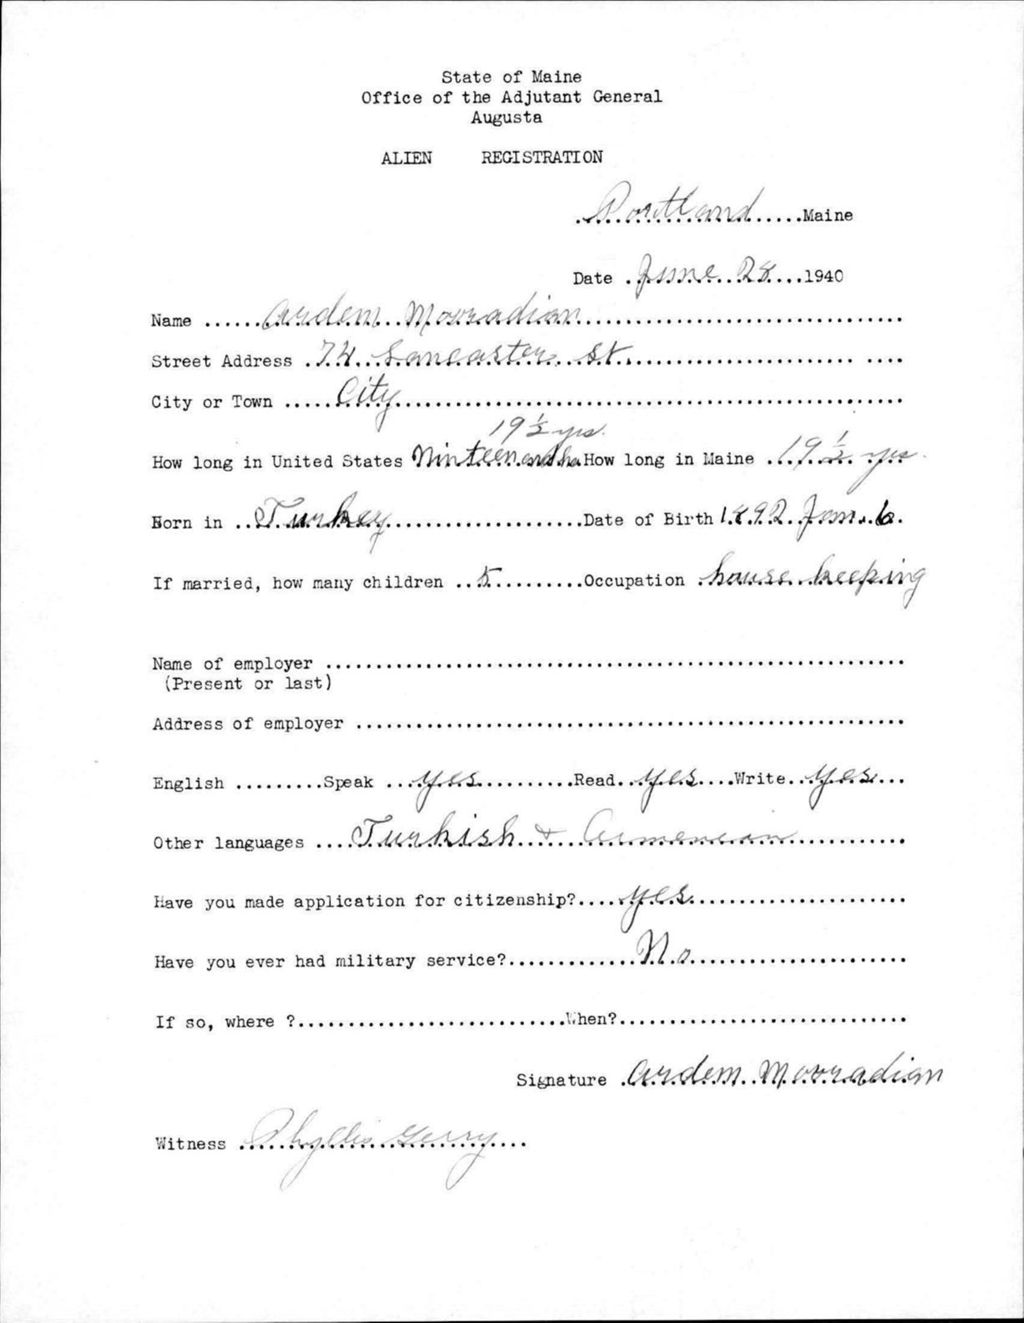 State of Maine
Office of the Adjutant General
Augusta
ALIEN REGISTRATION
Portland Maine
Date June 28 1940
Name Ardem Mooradian
Street Address 74 Lancaster St
City or Town City
19 1/2 yrs.
How long in United States Ninteen and ha How long in Maine 19 1/2 yrs.
Born in Turkey Date of Birth 1892 Jan. 6
If married, how many children 5 Occupation house keeping
Name of employer
(Present or last)
Address of employer
English Speak yes Read yes Write yes
Other languages Turkish & Armenean
Have you made application for citizenship? yes
Have you ever had military service? No
If so, where ? When?
Signature Ardem Mooradian
Witness Phyllis Gerry